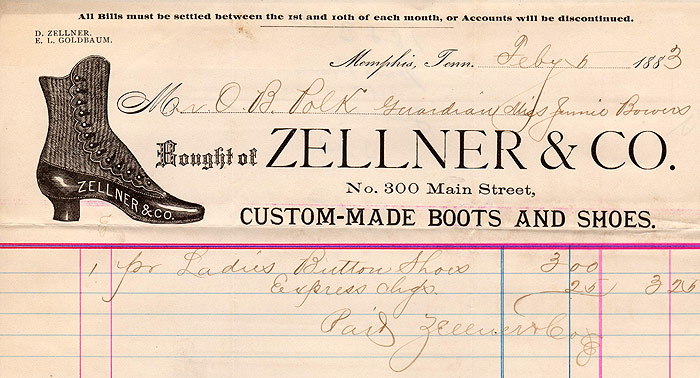 All Bills must be settled between the 1st and 10th of each month, or Accounts will be discontinued.
D. ZELLNER.
E. L. GOLDBAUM.
Memphis, Tenn. Feby 5 1883
Mr. O. B. Polk Guardian Miss Jennie Bowers
Bought of ZELLNER & CO.
ZELLNER & CO.
No. 300 Main Street,
CUSTOM-MADE BOOTS AND SHOES.
1 pr Ladies Button Shoes 3 00
Express chgs. 25 3 25
Paid Zellner & Co